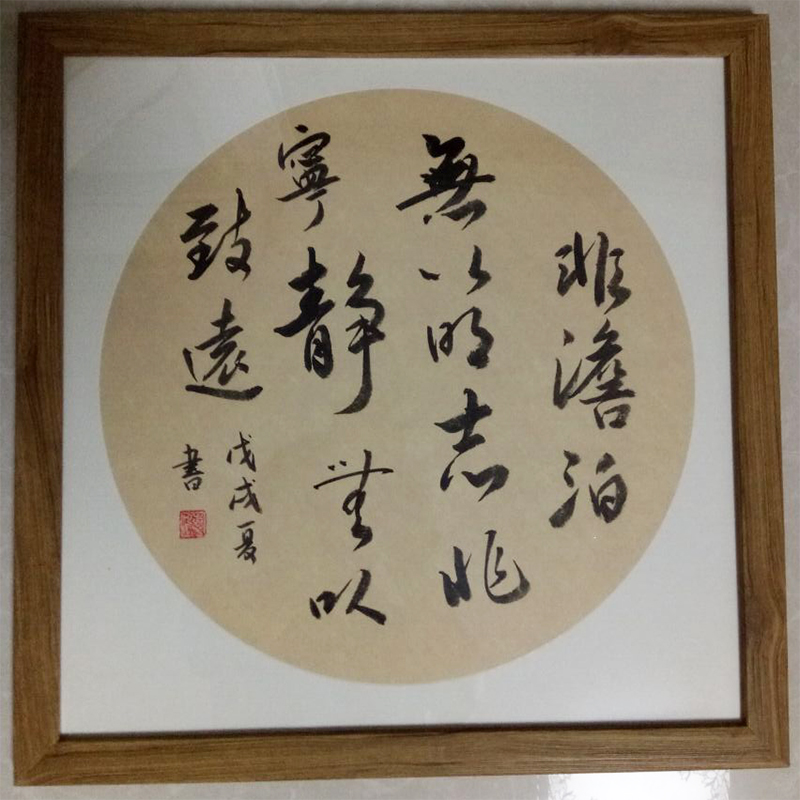 非澹泊
無以明志非
寧静無以
致遠
戊戌夏
書